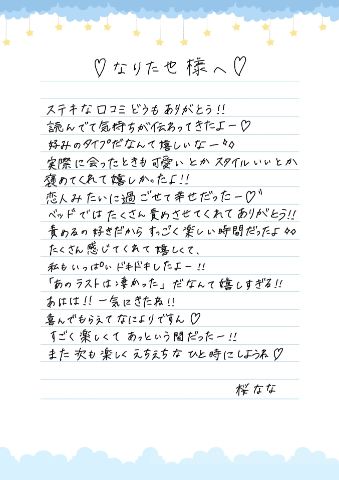 ♡なりた也 様へ♡
ステキな口コミどうもありがとう!!
読んでて気持ちが伝わってきたよー♡
好みのタイプだなんて嬉しいなー
実際に会ったときも可愛いとかスタイルいいとか
褒めてくれて嬉しかったよ!!
恋人みたいに過ごせて幸せだったー♡
ベッドではたくさん責めさせてくれてありがとう!!
責めるの好きだからすっごく楽しい時間だったよ
たくさん感じてくれて嬉しくて、
私もいっぱいドキドキしたよー!!
「あのラストは凄かった」だなんて嬉しすぎる!!
あはは!!一気にきたね!!
喜んでもらえてなによりですん♡
すごく楽しくてあっという間だったー!!
また次も楽しくえちえちなひと時にしようね♡
桜なな